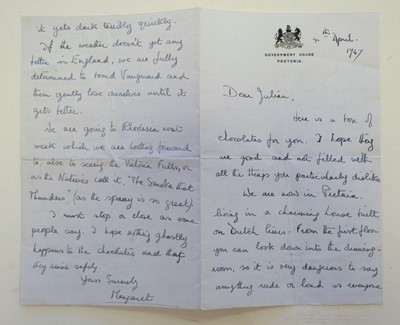 GOVERNMENT HOUSE
PRETORIA.
4th April.
1947
Dear Julian,
Here is a box of
chocolates for you. I hope they
are good and not filled with
all the things you particularly dislike
We are now in Pretoria
living in a charming house built
on Dutch lines. From the first floor
you can look down into the drawing-
room, so it is very dangerous to say
anything rude or loud as everyone
it gets dark terribly quickly.
If the weather doesn't get any
better in England, we are fully
determined to board Vanguard and
then gently lose ourselves until it
gets better.
We are going to Rhodesia next
week which we are looking forward
to, also to seeing the Victoria Falls, or
as the Natives call it, "The Smoke that
Thunders" (as the spray is so great)
I must stop or close as some
people say. I hope nothing ghastly
happens to the chocolates and that
they arrive safely
Yours Sincerely
Margaret